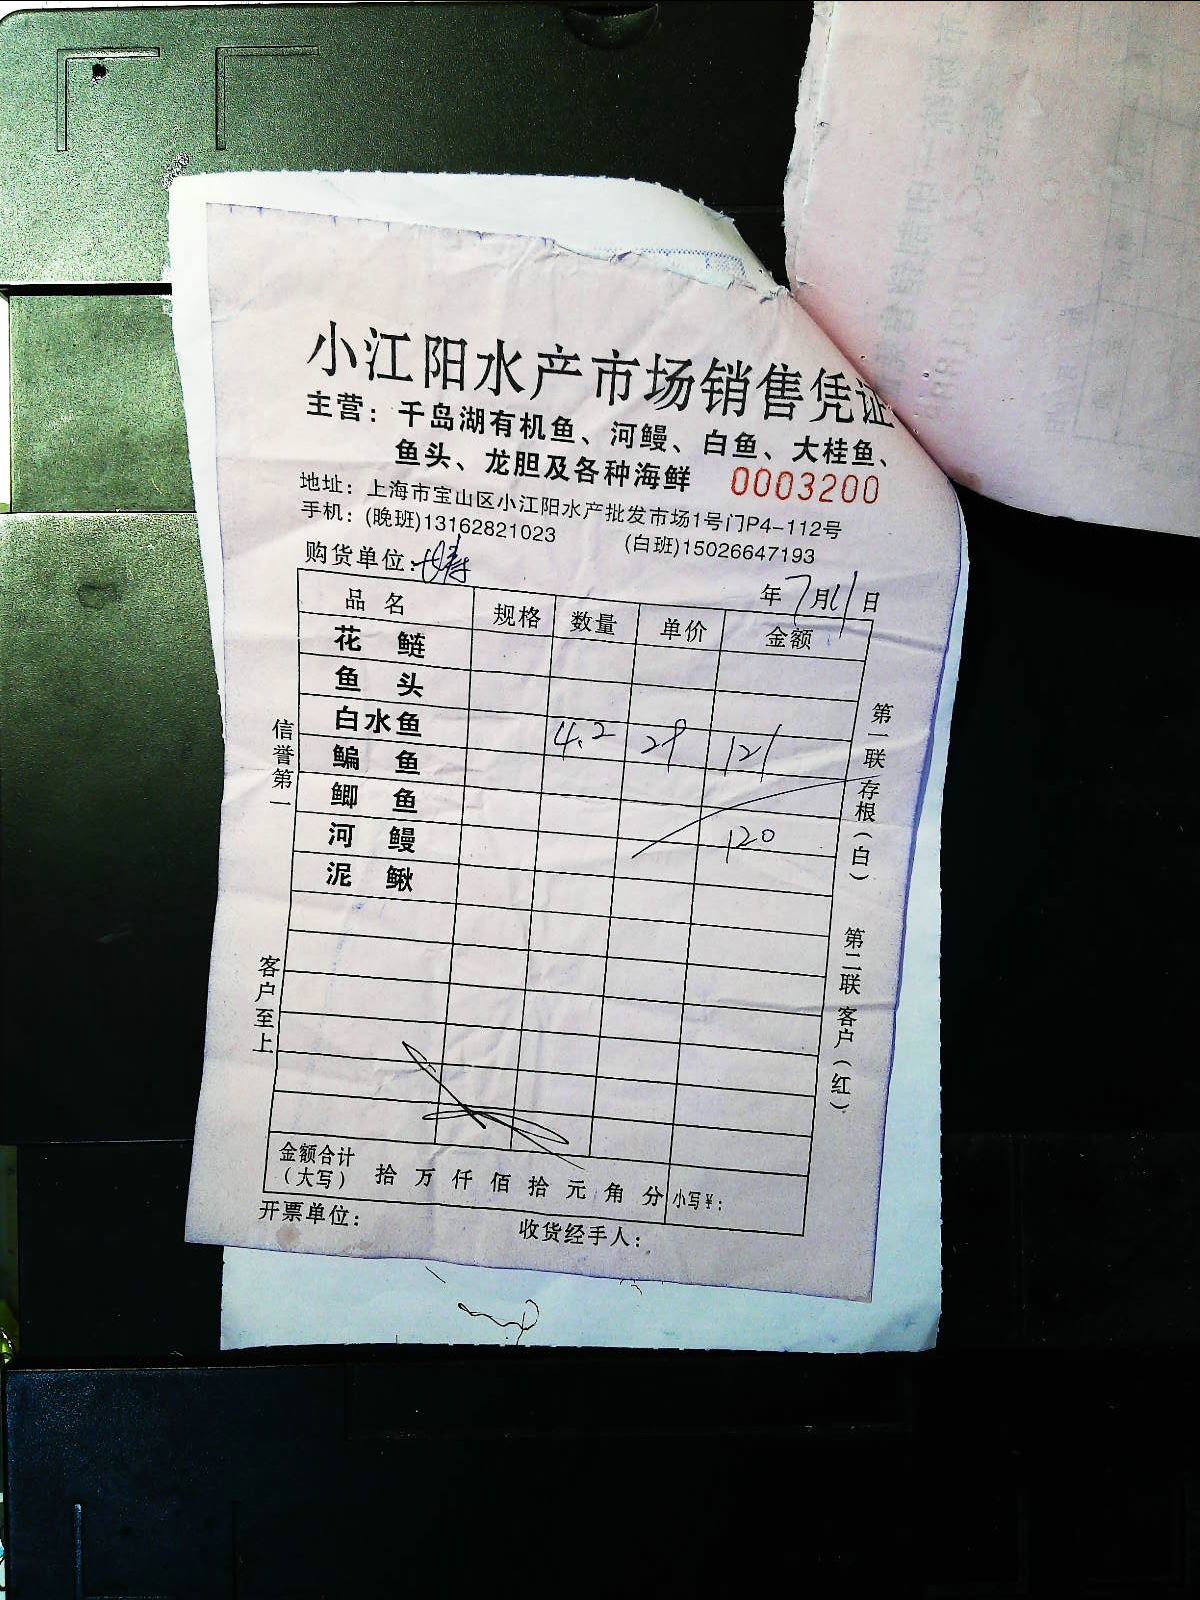 小江阳水产市场销售凭证
主营：千岛湖有机鱼、河鳗、白鱼、大桂鱼、
鱼头、龙胆及各种海鲜 0003200
地址：上海市宝山区小江阳水产批发市场1号门P4-112号
手机：(晚班)13162821023 (白班)15026647193
购货单位：
年7月11日
品名 规格 数量 单价 金额
花鲢
鱼头
白水鱼 4.2 29 121
鳊鱼
鲫鱼
河鳗 120
泥鳅
信誉第一
客户至上
第一联 存根（白）
第二联 客户（红）
金额合计
（大写） 拾 万 仟 佰 拾 元 角 分 小写￥：
开票单位： 收货经手人：